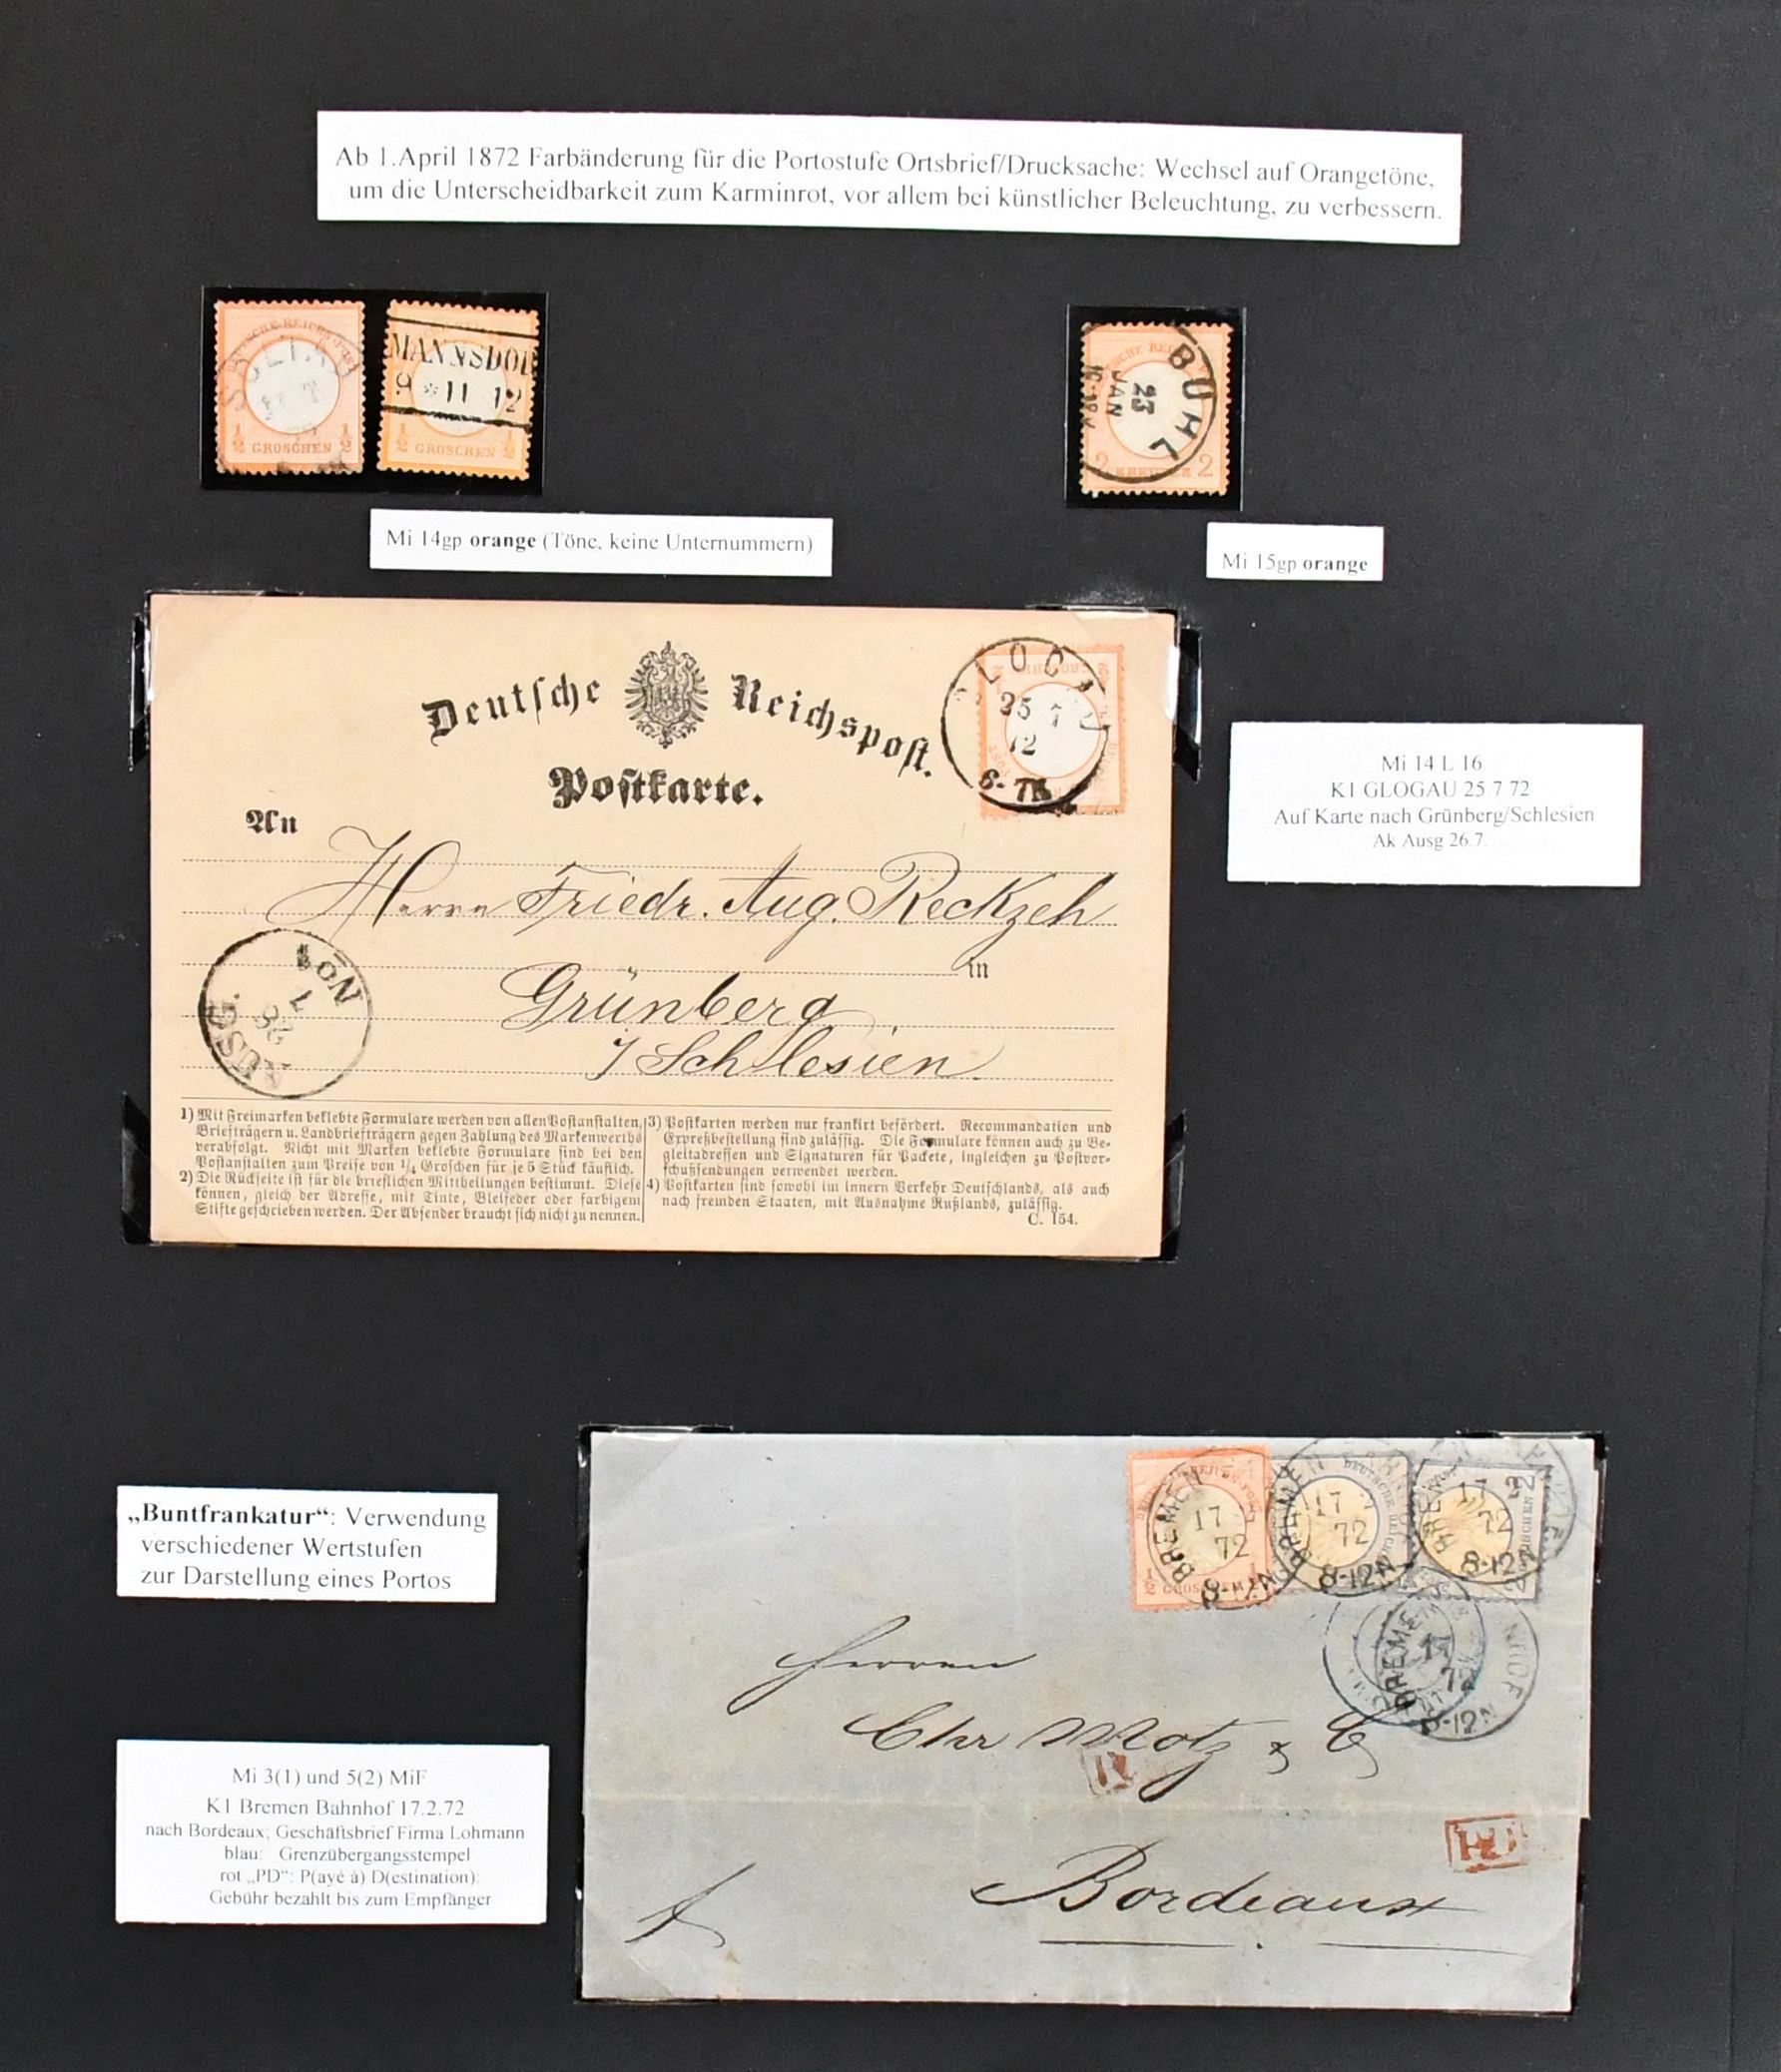 Ab 1.April 1872 Farbänderung für die Portostufe Ortsbrief/Drucksache: Wechsel auf Orangetöne,
um die Unterscheidbarkeit zum Karminrot, vor allem bei künstlicher Beleuchtung, zu verbessern.
½ GROSCHEN ½
MANNSDO
9 * 11 12
½ GROSCHEN ½
BÜHL
23
JAN
2 KREUZER 2
Mi 14gp orange (Töne, keine Unternummern)
Mi 15gp orange
Deutsche Reichspost.
Postkarte.
25 7
72
6-7
An
Herrn Friedr. Aug. Reckzeh
in
Grünberg
i/Schlesien.
AUSG.
26
7
No1
1) Mit Freimarken beklebte Formulare werden von allen Postanstalten,
Briefträgern u. Landbriefträgern gegen Zahlung des Markenwerths
verabfolgt. Nicht mit Marken beklebte Formulare sind bei den
Postanstalten zum Preise von 1/4 Groschen für je 5 Stück käuflich.
2) Die Rückseite ist für die brieflichen Mittheilungen bestimmt. Diese
können, gleich der Adresse, mit Tinte, Bleifeder oder farbigem
Stifte geschrieben werden. Der Absender braucht sich nicht zu nennen.
3) Postkarten werden nur frankirt befördert. Recommandation und
Expreßbestellung sind zulässig. Die Formulare können auch zu Be-
gleitadressen und Signaturen für Packete, ingleichen zu Postvor-
schußsendungen verwendet werden.
4) Postkarten sind sowohl im innern Verkehr Deutschlands, als auch
nach fremden Staaten, mit Ausnahme Rußlands, zulässig.
C. 154.
Mi 14 L 16
K1 GLOGAU 25 7 72
Auf Karte nach Grünberg/Schlesien
Ak Ausg 26.7.
„Buntfrankatur“: Verwendung
verschiedener Wertstufen
zur Darstellung eines Portos
Mi 3(1) und 5(2) MiF
K1 Bremen Bahnhof 17.2.72
nach Bordeaux; Geschäftsbrief Firma Lohmann
blau: Grenzübergangsstempel
rot „PD“: P(ayé à) D(estination):
Gebühr bezahlt bis zum Empfänger
BREMEN
17
72
8-12N
BREMEN
17
72
8-12N
BREMEN
17 2
72
8-12N
BREMEN
17
72
8-12N
Herren
Chr Motz & C
PD
Bordeaux